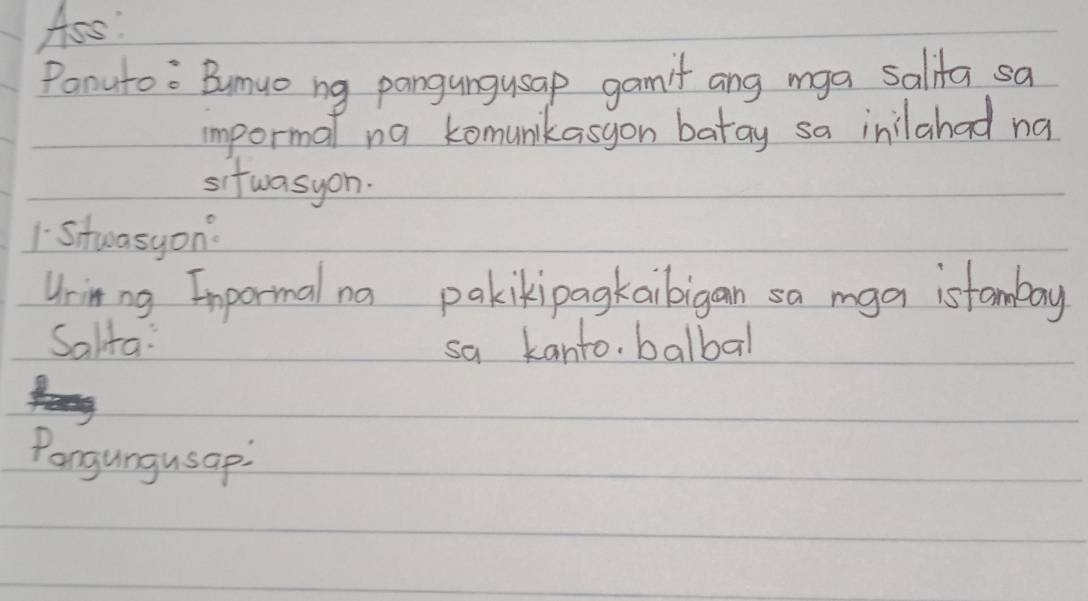 Ass:
Panuto: Bumuo ng pangungusap gamit ang mga salita sa
impormal na komunikasyon batay sa inilahad na
sitwasyon.
1. Sitwasyon:
Uri ng Inpormal na pakikipagkaibigan sa mga istambay
Salita: sa kanto. balbal
Pangungusap: